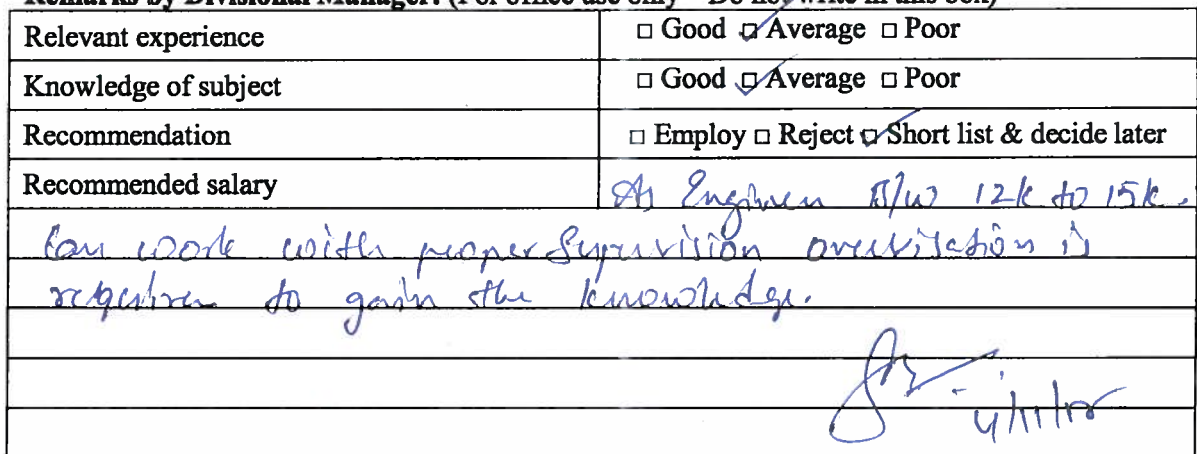 Remarks by Divisional Manager: (For office use only - Do not write in this box)
Relevant experience □ Good ☑ Average □ Poor
Knowledge of subject □ Good ☑ Average □ Poor
Recommendation □ Employ □ Reject ☑ Short list & decide later
Recommended salary As Engineer B/W 12k to 15k.
Can work with proper Supervision is
to gain the knowledge.